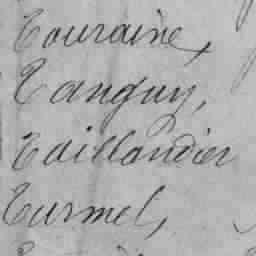 Touraine,
Tanguy,
Taillandier
Turmel,